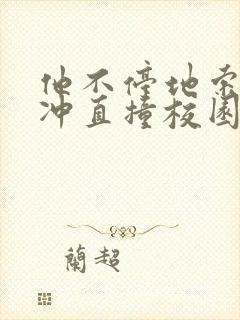 他不停地索
冲直撞校园
蘭超